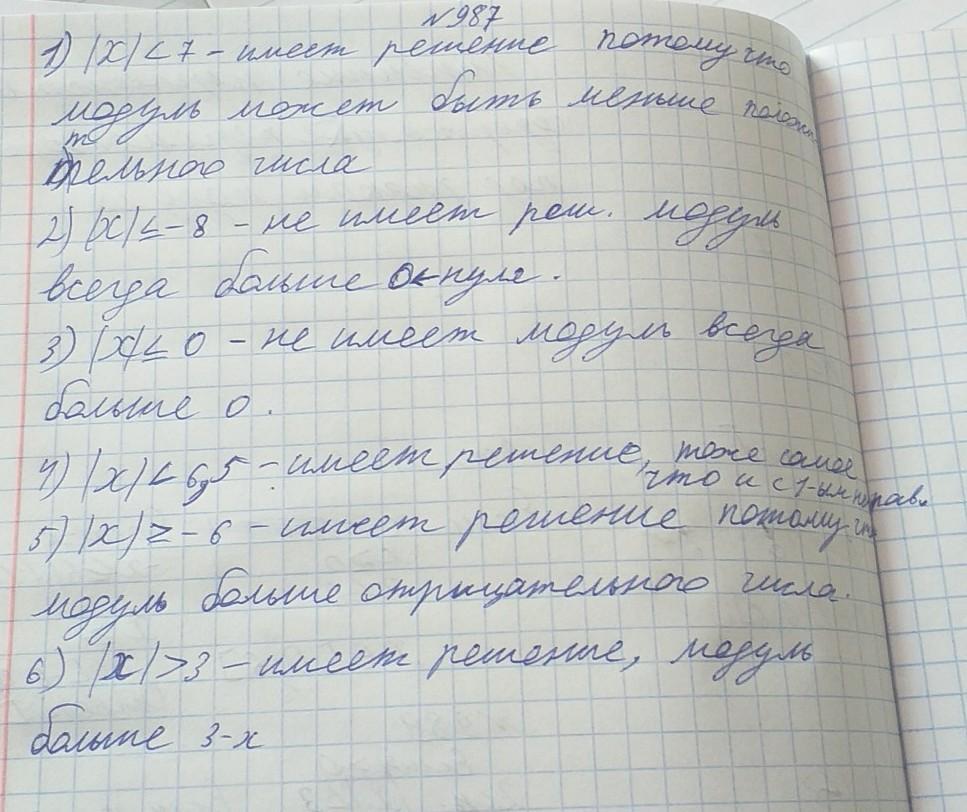 №987
1) |x| < 7 - имеет решение потому что
модуль может быть меньше положи
тельного числа
2) |x| ≤ -8 - не имеет реш. модуль
всегда больше нуля.
3) |x| < 0 - не имеет модуль всегда
больше 0.
4) |x| < 6,5 - имеет решение, тоже самое
что и с 1-ым нерав.
5) |x| ≥ -6 - имеет решение потому что
модуль больше отрицательного числа.
6) |x| > 3 - имеет решение, модуль
больше 3-х